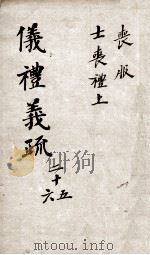 喪服
士喪禮上
儀禮義疏 二十五
六
mtoou.info